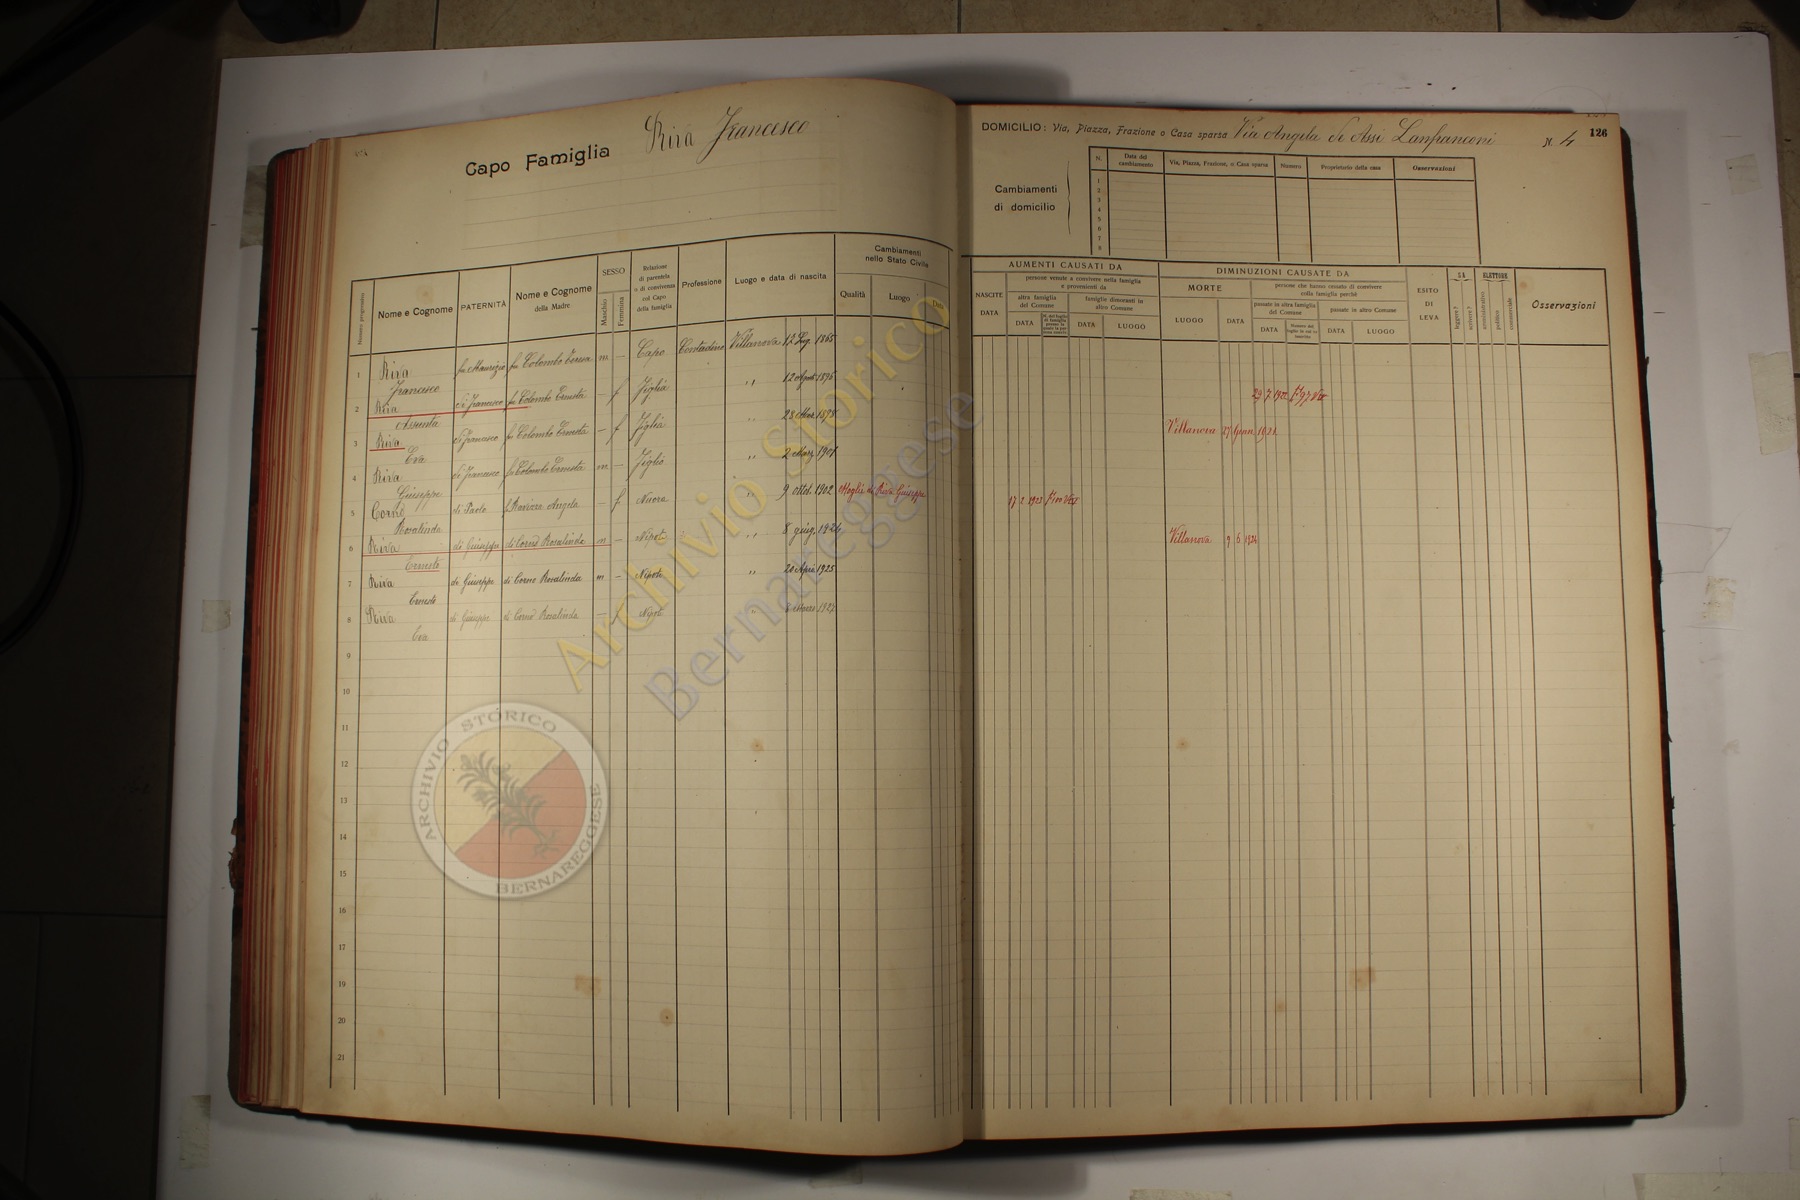 Capo Famiglia Riva Francesco
DOMICILIO: Via, Piazza, Frazione o Casa sparsa Via Angela De Assi Lanfranconi N. 4 126
Cambiamenti
di domicilio
N. Data del cambiamento Via, Piazza, Frazione, o Casa sparsa Numero Proprietario della casa Osservazioni
1
2
3
4
5
6
7
8
Numero progressivo Nome e Cognome PATERNITÀ Nome e Cognome della Madre SESSO Maschio Femmina Relazione di parentela o di convivenza col Capo della famiglia Professione Luogo e data di nascita Cambiamenti nello Stato Civile Qualità Luogo Data
NASCITE DATA AUMENTI CAUSATI DA persone venute a convivere nella famiglia e provenienti da altra famiglia del Comune DATA famiglie dimoranti in altro Comune DATA LUOGO
DIMINUZIONI CAUSATE DA MORTE LUOGO DATA persone che hanno cessato di convivere colla famiglia perchè passate in altra famiglia del Comune DATA passate in altro Comune DATA LUOGO
ESITO DI LEVA SA leggere? scrivere? ELETTORE amministrativo politico commerciale Osservazioni
1 Riva Francesco fu Maurizio fu Colombo Teresa m – Capo Contadino Villanova 12 Lug. 1865
2 Riva Assunta di Francesco fu Colombo Ernesta – f Figlia " 12 Agost. 1896 29 7 1922
3 Riva Eva di Francesco fu Colombo Ernesta – f Figlia " 28 Mar. 1898 Villanova 27 Genn. 1931
4 Riva Giuseppe di Francesco fu Colombo Ernesta m – Figlio " 2 Marz. 1901
5 Cornò Rosalinda di Paolo f Ravizza Angela – f Nuora " 9 ottob. 1902 Moglie di Riva Giuseppe 17 2 1923
6 Riva Ernesto di Giuseppe di Cornò Rosalinda m – Nipote " 8 giug. 1924 Villanova 9 6 1924
7 Riva Ernesto di Giuseppe di Cornò Rosalinda m – Nipote " 20 April 1925
8 Riva Eva di Giuseppe di Cornò Rosalinda – f Nipot " Marzo 1927
9
10
11
12
13
14
15
16
17
18
19
20
21
Archivio Storico
Bernareggese
ARCHIVIO STORICO
BERNAREGGESE